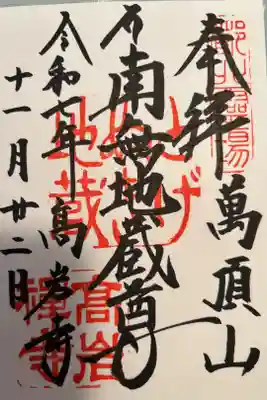 奉拝 萬頂山
南無地蔵尊
令和七年 髙岩寺
十一月廿二日
とげぬき
地蔵
高岩
禪寺